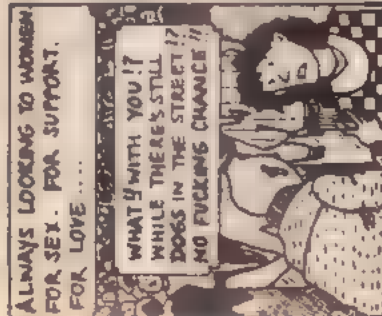 ALWAYS LOOKING TO WOMEN.
FOR SEX. FOR SUPPORT.
FOR LOVE ....
WHAT!? WITH YOU!?
WHILE THERE'S STILL
DOGS IN THE STREET!?
NO FUCKING CHANCE!!